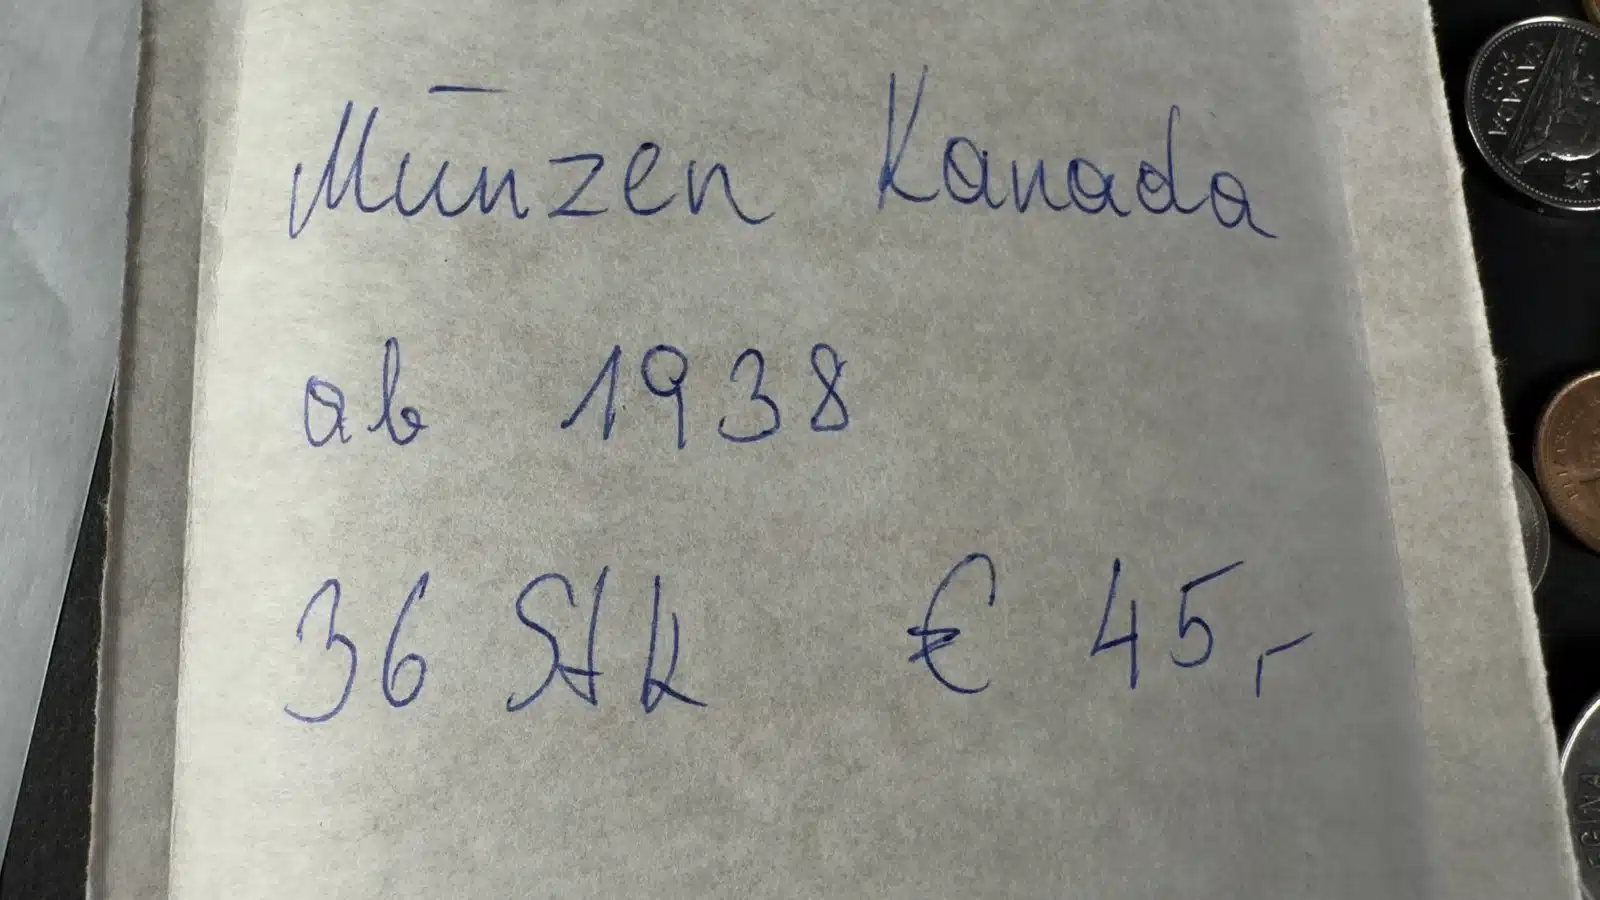 Münzen Kanada
ab 1938
36 Stk € 45,-
CANADA